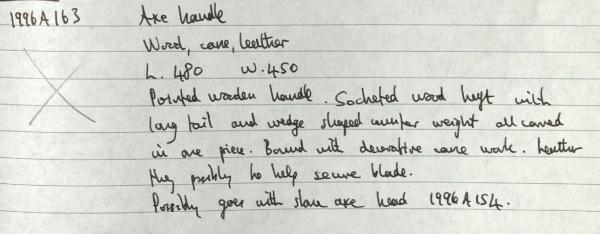 1996A163 Axe handle
Wood, cane, leather
L. 480 W. 450
Pointed wooden handle. Socketed wood haft with
long tail and wedge shaped counter weight all carved
in one piece. Bound with decorative cane work. Leather
possibly to help secure blade.
Possibly goes with stone axe head 1996A154.